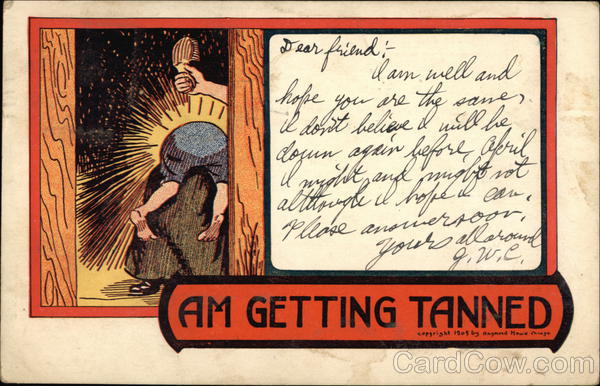 Dear friend:-
I am well and
hope you are the same,
I don't believe I will be
down again before April
I might and might not
although I hope I can.
Please answer soon.
Yours all around
G. W. C.
AM GETTING TANNED
copyright 1905 by Raymond Howe Chicago
CardCow.com